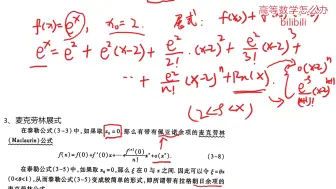 高等数学怎么办
bilibili
f(x)=e^x, x₀=2. 展式: f(x₀)+
e^x = e² + e²(x-2) + e²/2! ·(x-2)² + e²/3! (x-2)³
+ ⋯ + e²/n! (x-2)^n + Rn(x).
(2<ξ<x)
3、麦克劳林展式
在泰勒公式(3-3)中,如果取 x₀=0,那么有带有佩亚诺余项的麦克劳林
(Maclaurin)公式
f(x)=f(0)+f'(0)x+⋯+f⁽ⁿ⁾(0)/n! xⁿ+o(xⁿ). (3-8)
在泰勒公式(3-5)中,如果取 x₀=0,那么 ξ 在 0 与 x 之间. 因此可以令 ξ=θx
(0<θ<1),从而泰勒公式(3-5)变成较简单的形式,即所谓带有拉格朗日余项的